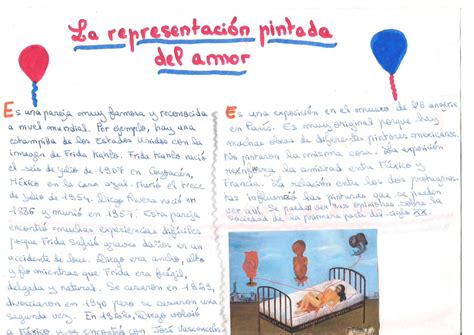 La representación pintada
del amor
Es una pareja muy famosa y reconocida
a nivel mundial. Por ejemplo, hay una
estampilla de los Estados Unidos con la
imagen de Frida Kahlo. Frida Kahlo nació
el seis de julio de 1907 en Coyoacán,
México en la casa azul. Murió el trece
de julio de 1954. Diego Rivera nació en
1886 y murió en 1957. Esta pareja
encontró muchas experiencias difíciles
porque Frida sufrió graves daños en un
accidente de bus. Diego era ancho, alto
y feo mientras que Frida era frágil,
delgada y natural. Se casaron en 1929,
divorciaron en 1940 pero se casaron una
segunda vez. En Diego volvió
a México y se encontró con José Vasconcelos
Es una exposición en el museo de
en París. Es muy original porque hay
muchas obras de diferentes pintores mexicanos.
No pintaron la misma cosa. La exposición
la amistad entre México y
Francia. La relación entre los dos
las pinturas que se pueden
ver aquí. Se puede ver sus opiniones sobre la
sociedad de la primera parte del siglo XX.